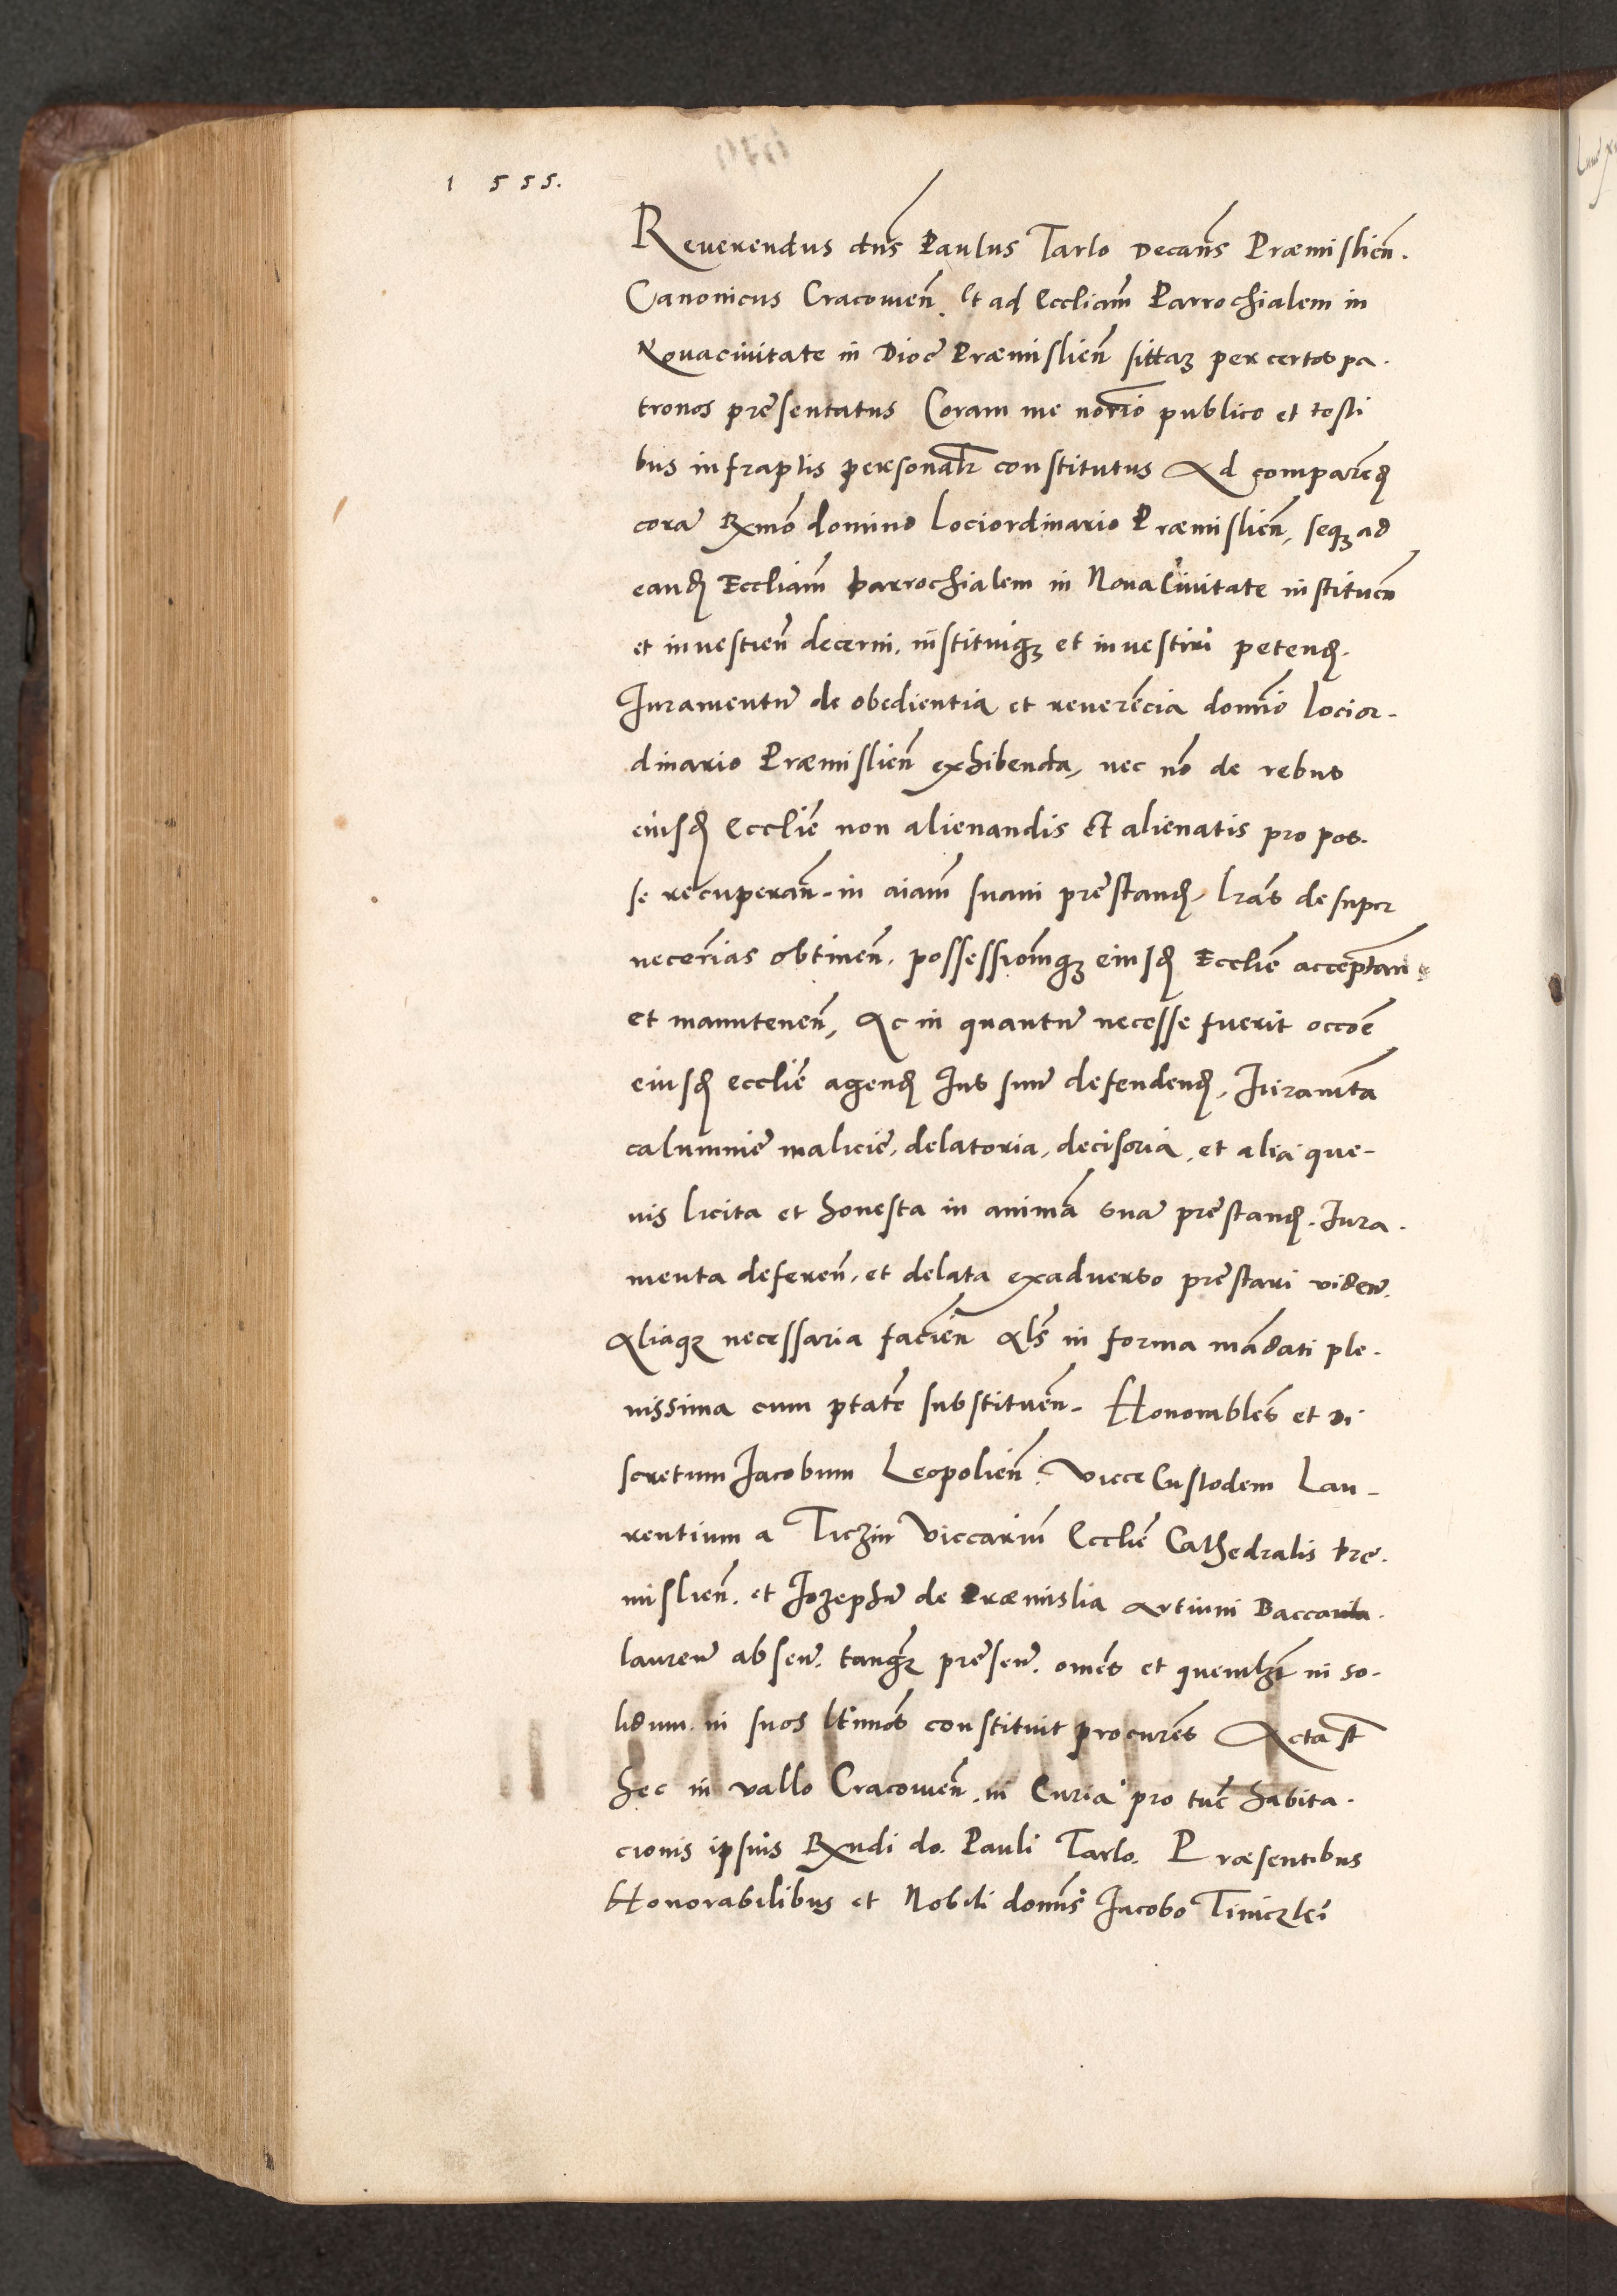 1555.
Reuerendus dns Paulus Tarlo Decans Præmislien.
Canonicus Cracouien. Et ad Eccliam Parrochialem in
Nouaciuitate in Dioc Præmislien sittaz per certos pa-
tronos presentatus Coram me norio publico et testi
bus infraptis personatr constitutus Ad comparend
cora Rxmo domino Lociordinario Præmislien, seqz ad
eand Eccliam parrochialem in Noua Ciuitate instituen
et inuestien decerni, instituiqz et inuestiri petend.
Iuramentu de obedientia et reuerencia domino locior-
dinario Præmislien exhibenda, nec no de rebus
eiusd Ecclie non alienandis et alienatis pro pos-
se recuperan. in aiam suam prestand, lras desuper
necerias obtinen, possessionqz eiusd Ecclie acceptan
et manutenen, Ac in quantu necesse fuerit occoe
eiusd ecclie agend Ius suum defendend, Iuramta
calumnie malicie, delatoria, decisoria, et alia que-
uis licita et honesta in anima sua prestand. Iura-
menta deferen, et delata exaduerso prestari viden.
Aliaqz necessaria facien Als in forma mandati ple-
nissima cum ptate substituen. Honorables et Di
scretum Jacobum Leopolien Vicce Custodem Lau-
rentium a Ticzin Viccariu Ecclie Cathedralis pre-
mislien. et Jozephu de Præmislia Artium Bacca
laureu absen. tanqz presen. omes et quemlzt in so-
lidum in suos ltimos constituit procures Acta st
hec in vallo Cracouien. in Curia pro tuc habita-
cionis ipsius Rxndi do. Pauli Tarlo. Præsentibus
Honorabilibus et Nobili domis Jacobo Tiniczki